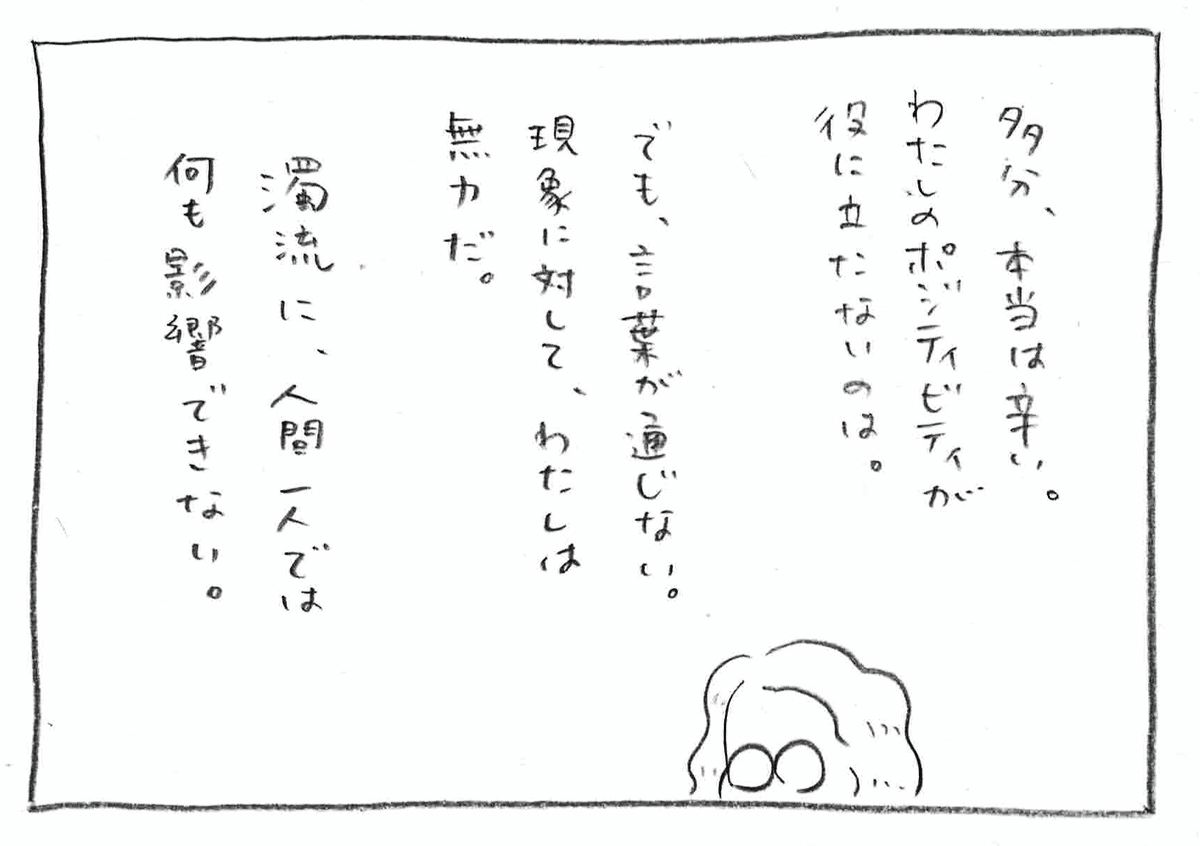 多分、本当は辛い。
わたしのポジティビティが
役に立たないのは。
でも、言葉が通じない。
現象に対して、わたしは
無力だ。
濁流に、人間一人では
何も影響できない。